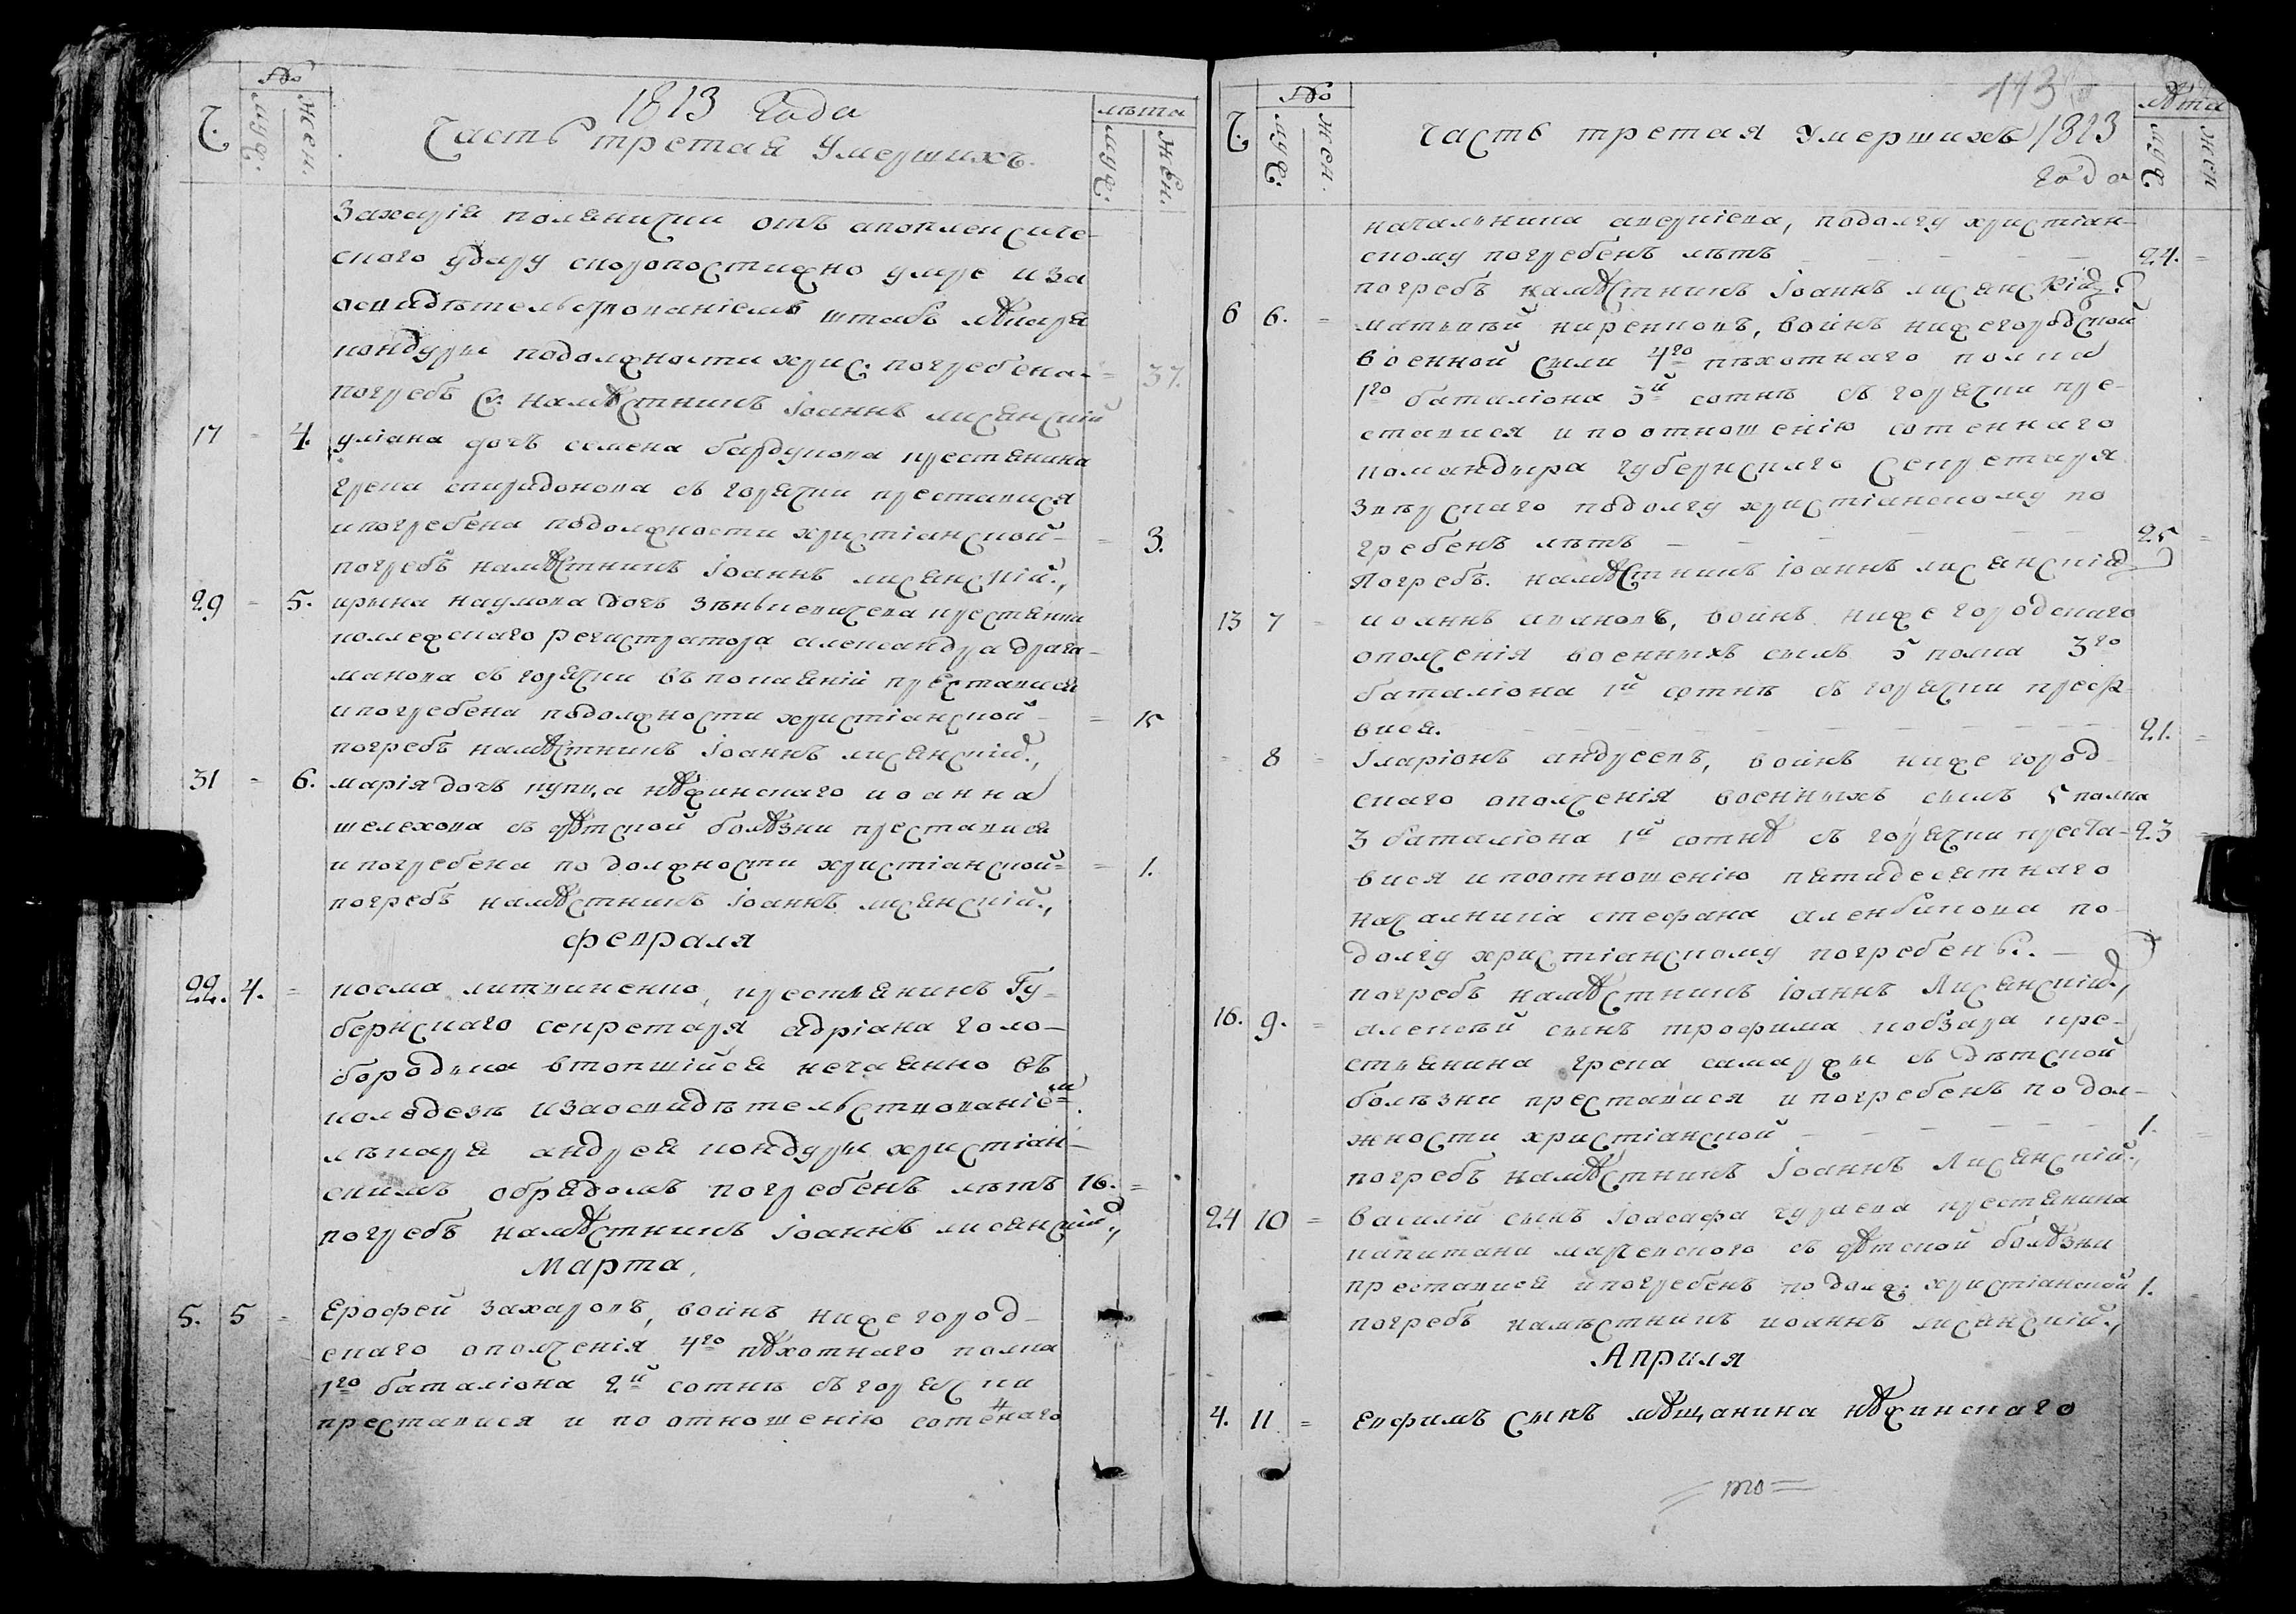 №
Ч.
муж.
жен.
1813 Года
Часть третая Умершихъ.
лѣта
муж.
жен.
Захарія полянички отъ апоплексиче-
скаго удару скоропостижно умре и за
освидѣтельствованіемъ штабъ лѣкаря
кондуры подолжности хрис. погребена = 37.
погребъ С: намѣстникъ Іоаннъ лисянскій
17 = 4. уліана дочъ семена бардукова крестянина
грека спиридонова съ горячки преставися
и погребена подолжности христіанской = 3.
погребъ намѣстникъ Іоаннъ лисянскій.,
29 = 5. ирина наумова дочъ крестянки
коллежскаго регистратора александра драга-
манова съ горячки въ покаяній преставися
и погребена подолжности христіанской = 15
погребъ намѣстникъ Іоаннъ лисянскій.,
31 = 6. марія дочъ купца нѣжинскаго иоанна
шелехова съ дѣтской болѣзни преставися
и погребена по должности христіанской = 1.
погребъ намѣстникъ Іоаннъ лисянскій.,
февраля
22. 4. = косма литвиненко, крестянинъ Гу-
бернскаго секретаря адріана голо-
бородька втопшійся нечаянно въ
колодезѣ и заосвидѣтельствованіем
лѣкаря андрея кондуры христіан-
скимъ обрядомъ погребенъ лѣтъ 16. =
погребъ намѣстникъ Іоаннъ лисянскій.,
марта,
5. 5 = Ерофей захаровъ, воинъ нижегород-
скаго ополченія 4го пѣхотнаго полка
1го баталіона 2й сотнѣ съ горячки
преставися и по отношенію сотенаго
113
№
Ч.
муж.
жен.
часть третая умершихъ 1813
года
лѣта
муж
жен
началника аверкіева, подолгу христіан-
скому погребенъ лѣтъ 24. =
погребъ намѣстникъ Іоаннъ лисянскій.
6 6. = матьвѣй кирековъ, воинъ нижегородской
военной силы 4го пѣхотнаго полка
1го баталіона 3й сотнѣ съ горячки пре-
ставися и поотношенію сотеннаго
командыра губернскаго секретаря
подолгу христіанскому по
гребенъ лѣтъ 25 =
Погребъ. намѣстникъ Іоаннъ лисянскій
13 7 = иоаннъ ивановъ, воинъ нижегородскаго
ополченія военныхъ силъ 5 полка 3го
баталіона 1й сотнѣ съ горячки преста-
вися. 21. =
= 8 = Іларіонъ андреевъ, воинъ нижегород-
скаго ополченія военныхъ силъ 5 полка
3 баталіона 1й сотнѣ съ горячки преста- 23 =
вися и поотношенію пятидесятнаго
началника стефана по-
долгу христіанскому погребенъ.
погребъ намѣстникъ Іоаннъ Лисянскій.,
16. 9. = алексѣй сынъ трофима кобзара кре-
стьянина грека самаржы съ дѣтской
болѣзни преставися и погребенъ по дол-
жности христіанской 1. =
погребъ намѣстникъ Іоаннъ Лисянскій.,
24 10 = василій сынъ Іоасафа гураева крестянина
капитани съ дѣтской болѣзни
преставися и погребенъ по долж: христіанской 1. =
погребъ намѣстникъ иоаннъ лисянскій.,
Априля
4. 11 = Евфимъ сынъ мѣщанина нѣжинскаго